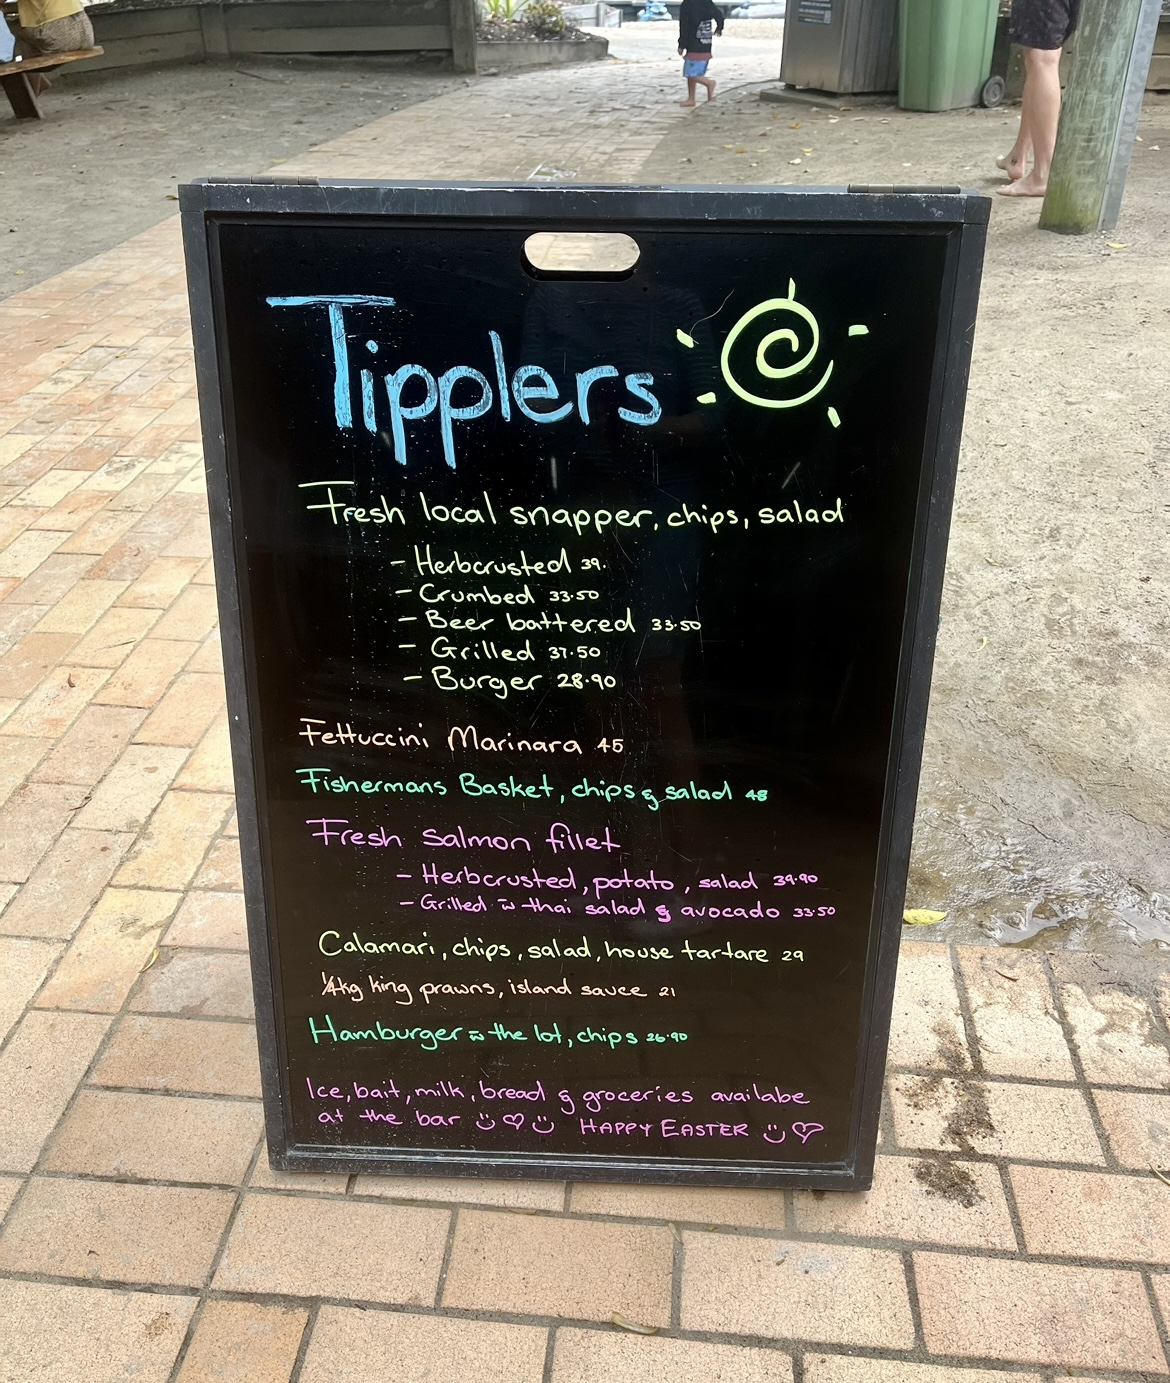 Tipplers
Fresh local snapper, chips, salad
- Herbcrusted 39.
- Crumbed 33.50
- Beer battered 33.50
- Grilled 37.50
- Burger 28.90
Fettuccini Marinara 45
Fishermans Basket, chips & salad 48
Fresh salmon fillet
- Herbcrusted, potato, salad 39.90
- Grilled w thai salad & avocado 33.50
Calamari, chips, salad, house tartare 29
1/4kg king prawns, island sauce 21
Hamburger w the lot, chips 26.90
Ice, bait, milk, bread & groceries availabe
at the bar ☺♡☺ HAPPY EASTER ☺♡